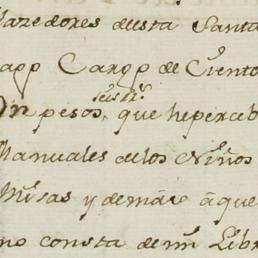 Hazedores desta Santa
Cargo de Ciento
pesos, que he perceb
Manuales de los Niños
Misas y demas à que
no consta de mi Libr